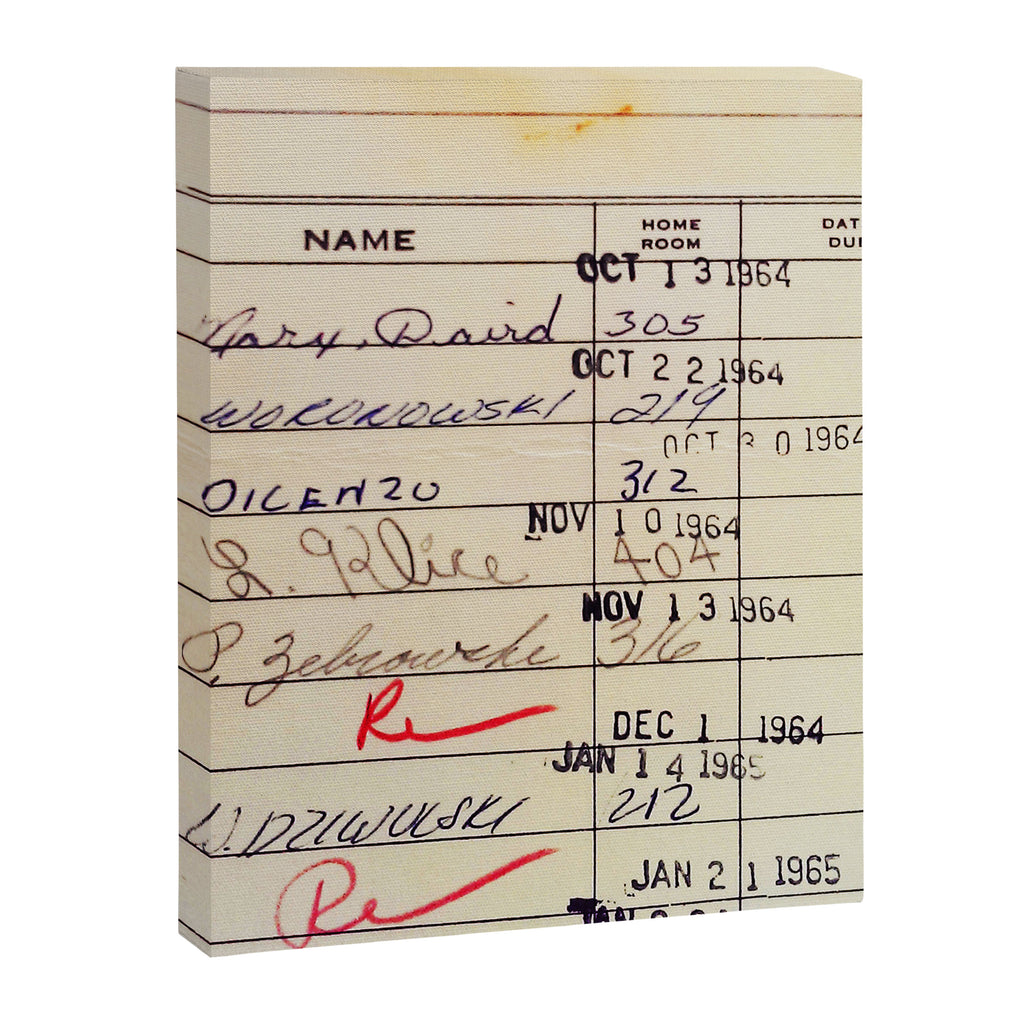 NAME HOME ROOM DAT DUE
OCT 13 1964
Mary Daird 305
OCT 22 1964
WORONOWSKI 219
OCT 30 1964
DICENZO 312
NOV 10 1964
L. Klice 404
NOV 13 1964
P. Zebrowski 316
Re DEC 1 1964
JAN 14 1965
W. DZIWULSKI 212
Re JAN 21 1965
JAN